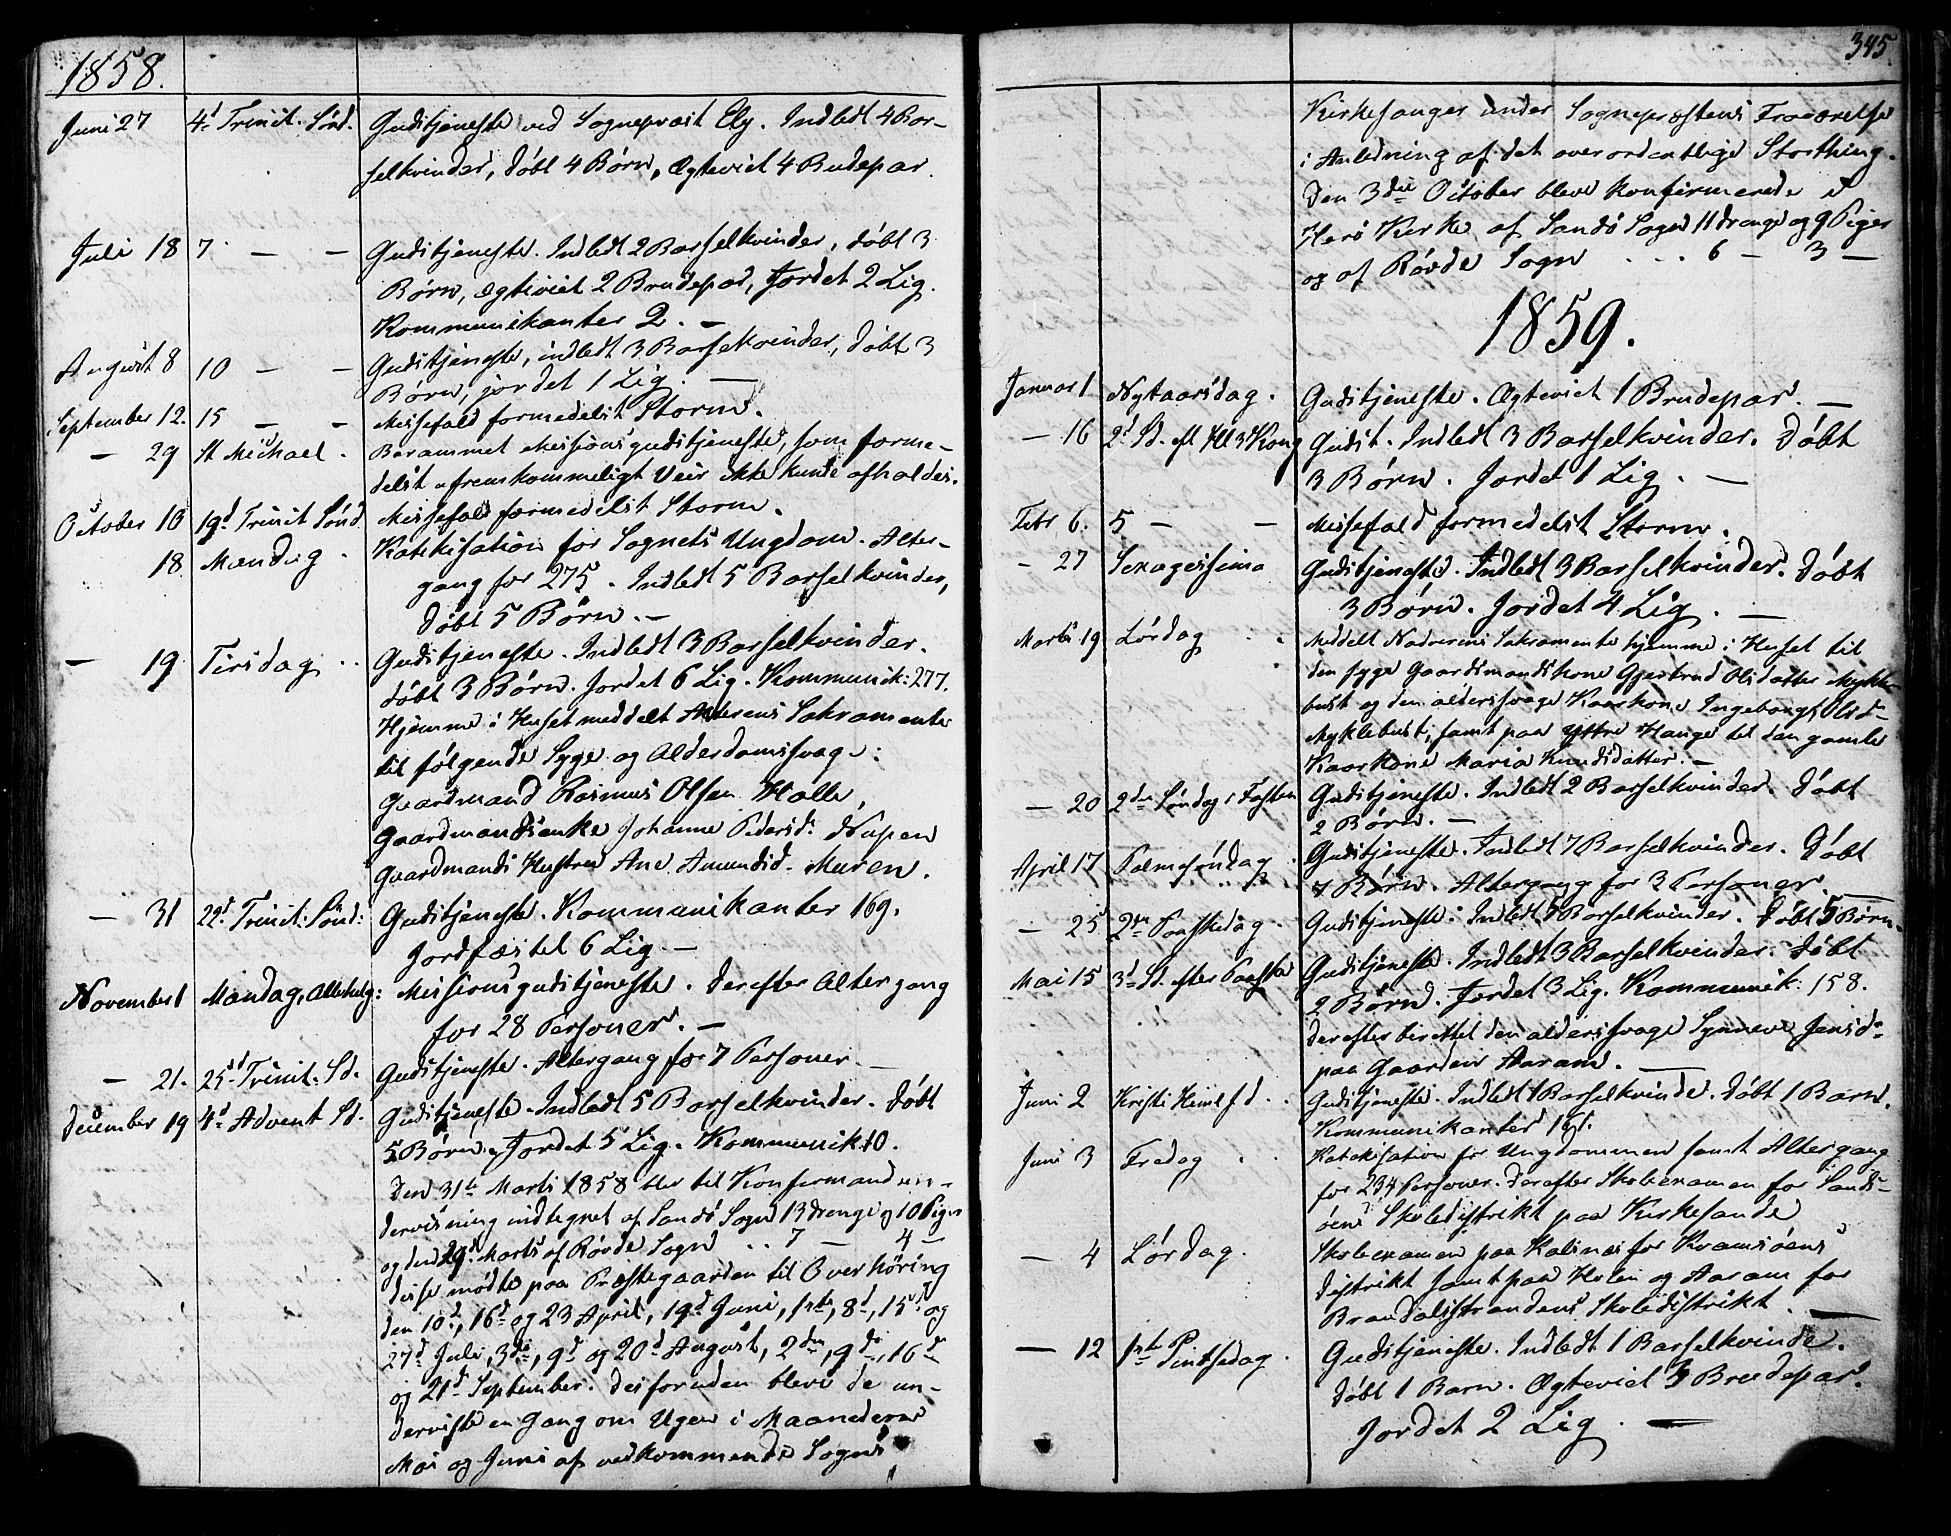 1858.
Juni 27 4d Trinit. Sönd. Gudstjeneste ved Sognepræst Ely. Indledt 4 Bar-
selkvinder, döbt 4 Börn, Ægteviet 4 Brudepar.
Juli 18 7 — — Gudstjeneste. Indledt 2 Barselkvinder, döbt 3
Börn, ægteviet 2 Brudepar, Jordet 2 Lig.
Kommunikanter 2. —
August 8 10 — — Gudstjeneste, indledt 3 Barselkvinder, döbt 3
Börn, jordet 1 Lig. —
September 12. 15 — — Messefald formedelst Storm.
— 29 St Michael. Berammet Missionsgudstjeneste, som forme-
delst ufremkommeligt Veir ikke kunde afholdes.
October 10 19d Trinit Sönd Messefald formedelst Storm.
18 Mandag. Katekisation for Sognets Ungdom. Alter-
gang for 275. Indledt 5 Barselkvinder,
döbt 5 Börn. —
— 19. Tirsdag .. Gudstjeneste. Indledt 3 Barselkvinder.
döbt 3 Börn. Jordet 6 Lig. Kommunik: 277.
Hjemme i Huset meddelt Alterens Sakramente
til fölgende Syge og Alderdomssvage:
Gaardmand Rasmus Olsen Halle,
Gaardmandsenke Johanne Pedersd: Nupen
Gaardmands Hustru Ane Amundsd. Muren.
— 31 22d Trinit: Sönd: Gudstjeneste. Kommunikanter 169.
Jordfæstet 6 Lig. —
November 1 Mandag, Allehelg: Missionsgudstjeneste. Derefter Altergang
for 28 Personer. —
— 21. 25d Trinit. Sd. Gudstjeneste. Altergang for 7 Personer. —
December 19 4d Advent Sd. Gudstjeneste. Indledt 5 Barselkvinder. Döbt
5 Börn. Jordet 5 Lig. Kommunik: 10.
Den 31te Marts 1858 blev til Konfirmandun-
dervisning indtegnet af Sandö Sogn 13 drenge og 10 Piger
og den 29d Marts af Rövde Sogn .. 7 — 4 —
disse mödte paa Præstegaarden til Overhöring
den 10d, 16d og 23 April, 19d Juni, 1ste, 8d, 15d og
27d Juli, 3die, 9d og 20d August, 2den, 9de, 16d
og 21d September. Desforuden bleve de un-
derviste en Gang om Ugen i Maanederne
Mai og Juni af vedkommende Sogns
345.
Kirkesanger under Sognepræstens Fraværelse
i Anledning af det overordentlige Storthing.
Den 3die October bleve konfirmerede i
Herö Kirke af Sandö Sogn 11 drenge og 9 Piger
og af Rövde Sogn .... 6 — 3 —
1859.
Januar 1 Nytaarsdag. Gudstjeneste. Ægteviet 1 Brudepar. —
— 16 2d Sd. eft Hl 3 Kong Gudst. Indledt 3 Barselkvinder. Döbt
3 Börn. Jordet 1 Lig. —
Febr 6. 5 — — Messefald formedelst Storm.
— 27 Sexagesima Gudstjeneste. Indledt 3 Barselkvinder. Döbt
3 Börn. Jordet 4 Lig. —
Marts 19 Lördag .. Meddelt Nadverens Sakramente hjemme i Huset til
den syge Gaardmandskone Gjertrud Olsdatter Mykle-
bust og den aldersvage Kaarkone Ingeborg Olsd-
Myklebust; samt paa Yttre Hauge til den gamle
Kaarkone Maria Knudsdatter. —
— 20 2den Söndag i Fasten Gudstjeneste. Indledt 2 Barselkvinder. Döbt
2 Börn. —
April 17 Palmesöndag. Gudstjeneste. Indledt 7 Barselkvinder. Döbt
7 Börn. Altergang for 2 Personer. —
— 25 2den Paaskedag. Gudstjeneste. Indledt 5 Barselkvinder. Döbt 5 Börn.
Mai 15 3d Sd. efter Paaske Gudstjeneste. Indledt 3 Barselkvinder. Döbt
2 Börn. Jordet 3 Lig. Kommunik: 158.
derefter berettet den aldersvage Synneve Jensd-
paa Gaarden Aaram. —
Juni 2 Kristi Himlfd .. Gudstjeneste. Indledt 1 Barselkvinde. Döbt 1 Barn.
Kommunikanter 191.
Juni 3 Fredag .. Katekisation for Ungdommen samt Altergang
for 234 Personer. Derefter Skoleexamen for Sands-
öens Skoledistrikt paa Kirkesande
— 4 Lördag. Skoleexamen paa Kalnes for Kvamsöens
distrikt samt paa Holen og Aaram for
Brandalsstrandens Skoledistrikt. —
— 12 1ste Pintsedag. Gudstjeneste. Indledt 1 Barselkvinde.
Döbt 1 Barn. Ægteviet 3 Brudepar.
Jordet 2 Lig. —